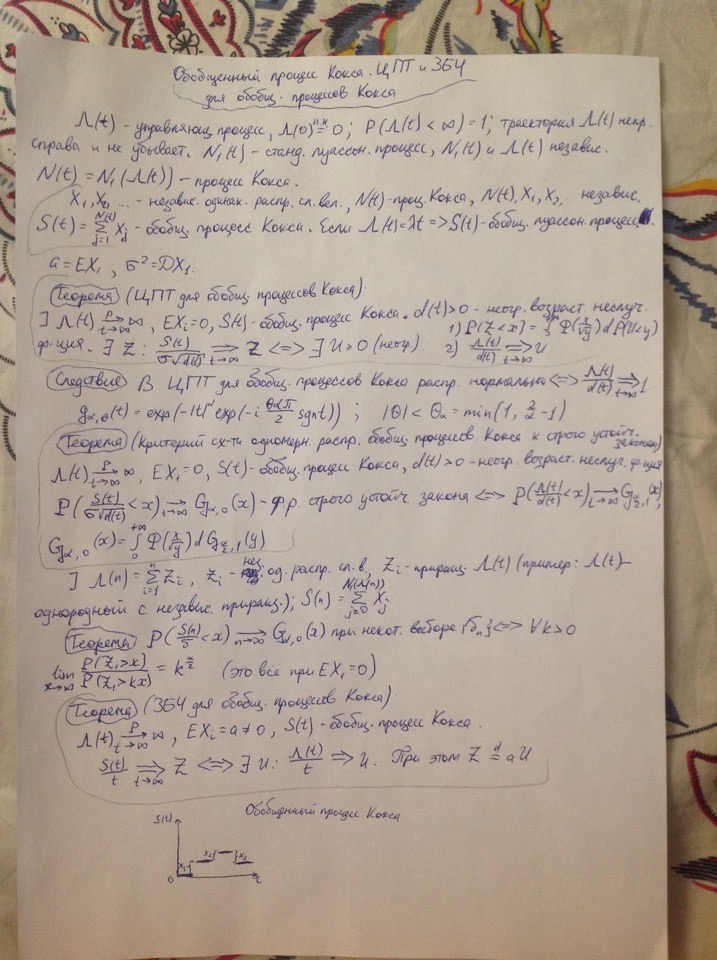 Обобщенный процесс Кокса. ЦПТ и ЗБЧ
для обобщ. процессов Кокса
Λ(t) – управляющ процесс, Λ(0) п.н.= 0; P(Λ(t) < ∞) = 1; траектория Λ(t) непр.
справа и не убывает. N₁(t) – станд. пуассон. процесс, N₁(t) и Λ(t) независ.
N(t) = N₁(Λ(t)) – процесс Кокса.
X₁, X₂, ... – независ. одинак. распр. сл. вел., N(t) – проц. Кокса, N(t), X₁, X₂, независ.
S(t) = Σ_{j=1}^{N(t)} X_j – обобщ. процесс Кокса. Если Λ(t) = λt => S(t) – обобщ. пуассон. процесс
a = EX₁, σ² = DX₁.
Теорема (ЦПТ для обобщ. процессов Кокса)
∃ Λ(t) P→ t→∞ ∞, EX₁ = 0, S(t) – обобщ. процесс Кокса. d(t) > 0 – неогр. возраст. неслуч.
ф-ция. ∃ Z: S(t)/(σ√d(t)) ⇒ t→∞ Z <=> ∃ U ≥ 0 (неотр) 1) P(Z < x) = ∫₀^{+∞} Φ(x/√y) dP(U < y) 2) Λ(t)/d(t) ⇒ t→∞ U
Следствие В ЦПТ для обобщ. процессов Кокса распр. нормально <=> Λ(t)/d(t) ⇒ t→∞ 1
g_{α,θ}(t) = exp(-|t|^α exp(-i θαπ/2 sgn t)); |θ| < θ_α = min(1, 2/α - 1)
Теорема (критерий сх-ти одномерн. распр. обобщ. процессов Кокса к строго устойч. законам)
Λ(t) P→ t→∞ ∞, EX₁ = 0, S(t) – обобщ. процесс Кокса, d(t) > 0 – неогр. возраст. неслуч. ф-ция
P(S(t)/(σ√d(t)) < x) → t→∞ G_{α,0}(x) – ф.р. строго устойч закона <=> P(Λ(t)/d(t) < x) → t→∞ G_{α/2,1}(x),
G_{α,0}(x) = ∫₀^{+∞} Φ(x/√y) d G_{α/2,1}(y)
∃ Λ(n) = Σ_{i=1}^{n} Z_i, Z_i – нез. од. распр. сл. в, Z_i – приращ. Λ(t) (пример: Λ(t) –
однородный с независ. приращ.); S(n) = Σ_{j=0}^{N(Λ(n))} X_j
Теорема P(S(n)/δ < x) → n→∞ G_{α,0}(x) при некот. выборе {δ_n} <=> ∀ k > 0
lim x→∞ P(Z₁ > x)/P(Z₁ > kx) = k^{α/2} (это всё при EX₁ = 0)
Теорема (ЗБЧ для обобщ. процессов Кокса)
Λ(t) P→ t→∞ ∞, EX_i = a ≠ 0, S(t) – обобщ. процесс Кокса.
S(t)/t ⇒ t→∞ Z <=> ∃ U: Λ(t)/t ⇒ U. При этом Z d= aU
Обобщенный процесс Кокса
S(t)
X₁ X₂ X₃
0 t